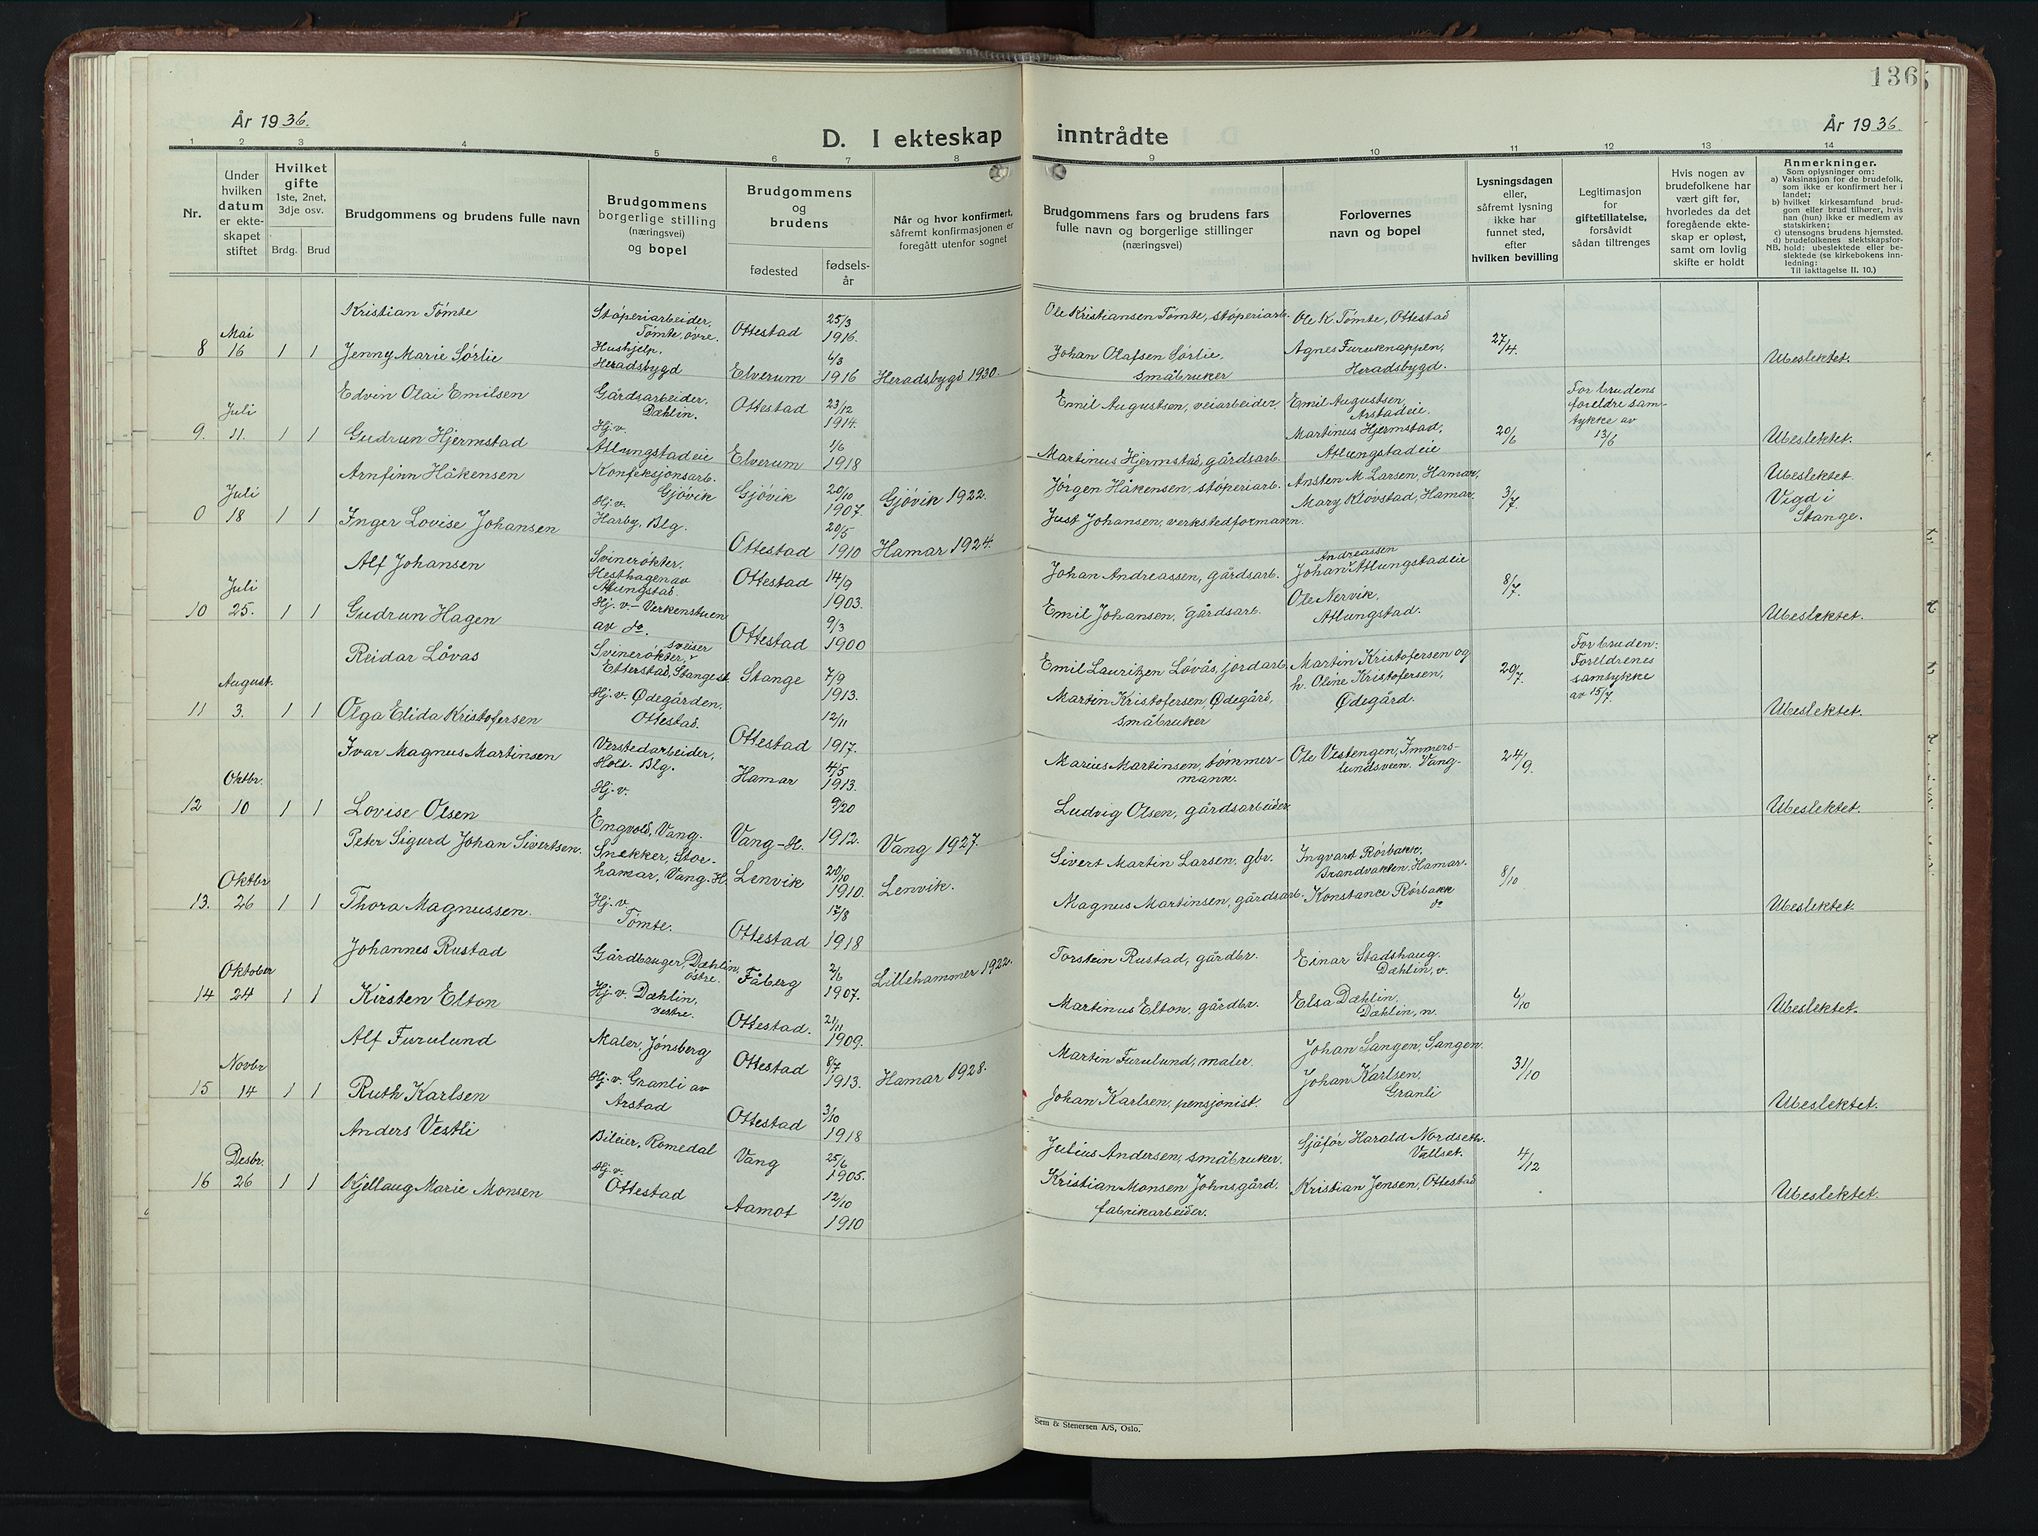 136
År 1936.
D. I ekteskap inntrådte
År 1936.
1 2 3 4 5 6 7 8 9 10 11 12 13 14
Nr.
Under hvilken datum er ekteskapet stiftet
Hvilket gifte
1ste, 2net, 3dje osv.
Brdg. Brud
Brudgommens og brudens fulle navn
Brudgommens borgerlige stilling (næringsvei) og bopel
Brudgommens og brudens
fødested
fødselsår
Når og hvor konfirmert, såfremt konfirmasjonen er foregått utenfor sognet
Brudgommens fars og brudens fars fulle navn og borgerlige stillinger (næringsvei)
Forlovernes navn og bopel
Lysningsdagen eller, såfremt lysning ikke har funnet sted, efter hvilken bevilling
Legitimasjon for giftetillatelse, forsåvidt sådan tiltrenges
Hvis nogen av brudefolkene har vært gift før, hvorledes da det foregående ekteskap er opløst, samt om lovlig skifte er holdt
Anmerkninger.
Som oplysninger om:
a) Vaksinasjon for de brudefolk, som ikke er konfirmert her i landet;
b) hvilket kirkesamfund brudgom eller brud tilhører, hvis han (hun) ikke er medlem av statskirken;
c) utensogns brudens hjemsted.
d) brudefolkenes slektskapsforhold: ubeslektede eller beslektede (se kirkebokens innledning:
NB.
Til iakttagelse II. 10.)
Kristian Tømte Støperiarbeider, Tømte, øvre. Ottestad 25/3 1916. Ole Kristiansen Tømte, støperiarb. Ole K. Tømte, Ottestad
8 Mai 16 1 1 Jenny Marie Sørlie Hushjelp, Heradsbygd Elverum 6/3 1916 Heradsbygd 1930. Johan Olafsen Sørlie, småbruker Agnes Furuknappen, Heradsbygd. 27/4. Ubeslektet.
Edvin Olai Emilsen Gårdsarbeider, Dæhlin. Ottestad 23/12 1914. Emil Augustsen, veiarbeider, Emil Augustsen, Arstadeie.
9. Juli 11. 1 1 Gudrun Hjermstad Hj.v. Atlungstadeie Elverum 1/6 1918 Martinus Hjermstad, gårdsarb. Martinus Hjermstad, Atlungstadeie 20/6 For brudens foreldre samtykke av 13/6 Ubeslektet.
Arnfinn Håkensen Konfeksjonsarb. Gjøvik Gjøvik 20/10 1907. Gjøvik 1922. Jørgen Håkensen, støperiarb. Ansten M. Larsen, Hamar,
0 Juli 18 1 1 Inger Lovise Johansen Hj.v. Harby, Blg. Ottestad 20/5 1910 Hamar 1924. Just Johansen, verkstedformann. Mary Klovstad, Hamar. 3/7 Ubeslektet. Vigd i Stange.
Alf Johansen Svinerøkter, Hesthagen av Atlungstad. Ottestad 14/9 1903. Johan Andreassen, gårdsarb. Johan Andreassen Atlungstadeie
10 Juli 25. 1 1 Gudrun Hagen Hj.v – Verkenstuen av do. Ottestad 9/3 1900 Emil Johansen, gårdsarb. Ole Nervik, Atlungstad. 8/7. Ubeslektet.
Reidar Løvås Svinerøkter, sveiser Etterstad, Stange st. Stange 7/9 1913. Emil Lauritzen Løvås, jordarb. Martin Kristofersen og
11 August. 3. 1 1 Olga Elida Kristofersen Hj.v. Ødegården, Ottestad. Ottestad 12/11 1917. Martin Kristofersen, Ødegård, småbruker h. Oline Kristofersen, Ødegård. 20/7. For bruden: Foreldrenes samtykke av 15/7. Ubeslektet.
Ivar Magnus Martinsen Verstedarbeider, Holt. Blg. Hamar 4/5 1913. Marius Martinsen, tømmermann. Ole Vestengen, Immerslundsveen. Vang 24/9.
12 Oktbr. 10 1 1 Lovise Olsen Hj.v. Engvold, Vang. Vang-H. 9/20 1912. Vang 1927. Ludvig Olsen, gårdsarbeider Ubeslektet.
Peter Sigurd Johan Sivertsen. Snekker, Storhamar, Vang.H. Lenvik 20/10 1910. Lenvik. Sivert Martin Larsen, gbr. Ingvart Rørbakk, Brandvakten, Hamar.
13. Oktbr 26 1 1 Thora Magnussen. Hj.v. Tømte. Ottestad 17/8 1918 Magnus Martinsen, gårdsarb. Konstance Rørbakk do 8/10 Ubeslektet.
Johannes Rustad Gårdbruger, Dæhlin, østre. Fåberg 2/6 1907. Lillehammer 1922. Torstein Rustad, gårdbr. Einar Stadshaug, Dæhlin, v.
14 Oktober 24 1 1 Kirsten Elton Hj.v. Dæhlin, vestre. Ottestad. 21/11 1909. Martinus Elton, gårdbr. Elsa Dæhlin, Dæhlin, n. 6/10 Ubeslektet.
Alf Furulund Maler, Jønsberg Ottestad 8/7 1913. Hamar 1928. Martin Furulund, maler. Johan Sangen, Sangen
15 Novbr 14 1 1 Ruth Karlsen Hj.v. Granli av Arstad Ottestad 3/10 1918 Johan Karlsen, pensjonist. Johan Karlsen, Granli 31/10 Ubeslektet.
Anders Vestli Bileier, Romedal Vang 25/6 1905. Julius Andersen, småbruker. Sjåfør Harald Nordseth, Vallset.
16 Desbr. 26 1 1 Kjellaug Marie Monsen Hj.v. Ottestad Aamot 12/10 1910 Kristian Monsen Johnsgård, fabrikarbeider. Kristian Jensen, Ottestad 4/12 Ubeslektet.
Sem & Stenersen A/S, Oslo.